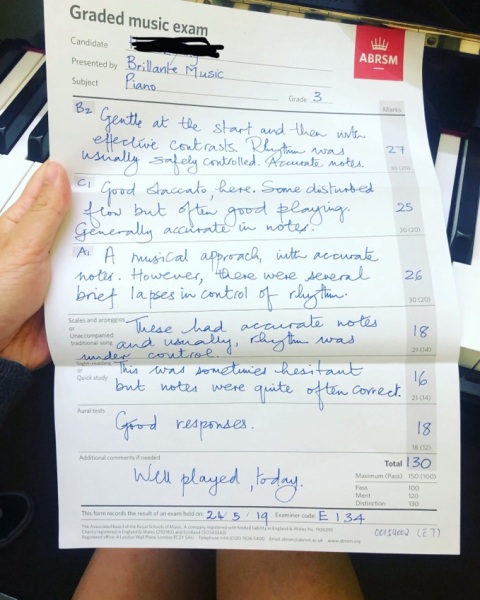 Graded music exam
Candidate
ABRSM
Presented by Brillante Music
Subject Piano
Grade 3
Marks
B2 Gentle at the start and then with
effective contrasts. Rhythm was
usually safely controlled. Accurate notes.
27
30 (20)
C1 Good staccato, here. Some disturbed
flow but often good playing.
Generally accurate in notes.
25
30 (20)
A1 A musical approach, with accurate
notes. However, there were several
brief lapses in control of rhythm.
26
30 (20)
Scales and arpeggios
or
Unaccompanied
traditional song
These had accurate notes
and usually, rhythm was
under control.
18
21 (14)
or
Quick study
This was sometimes hesitant
but notes were quite often correct.
16
21 (14)
Aural tests
Good responses.
18
18 (12)
Additional comments if needed
Well played, today.
Total 130
Maximum (Pass) 150 (100)
Pass 100
Merit 120
Distinction 130
This form records the result of an exam held on 24/5/19 Examiner code E 134
The Associated Board of the Royal Schools of Music